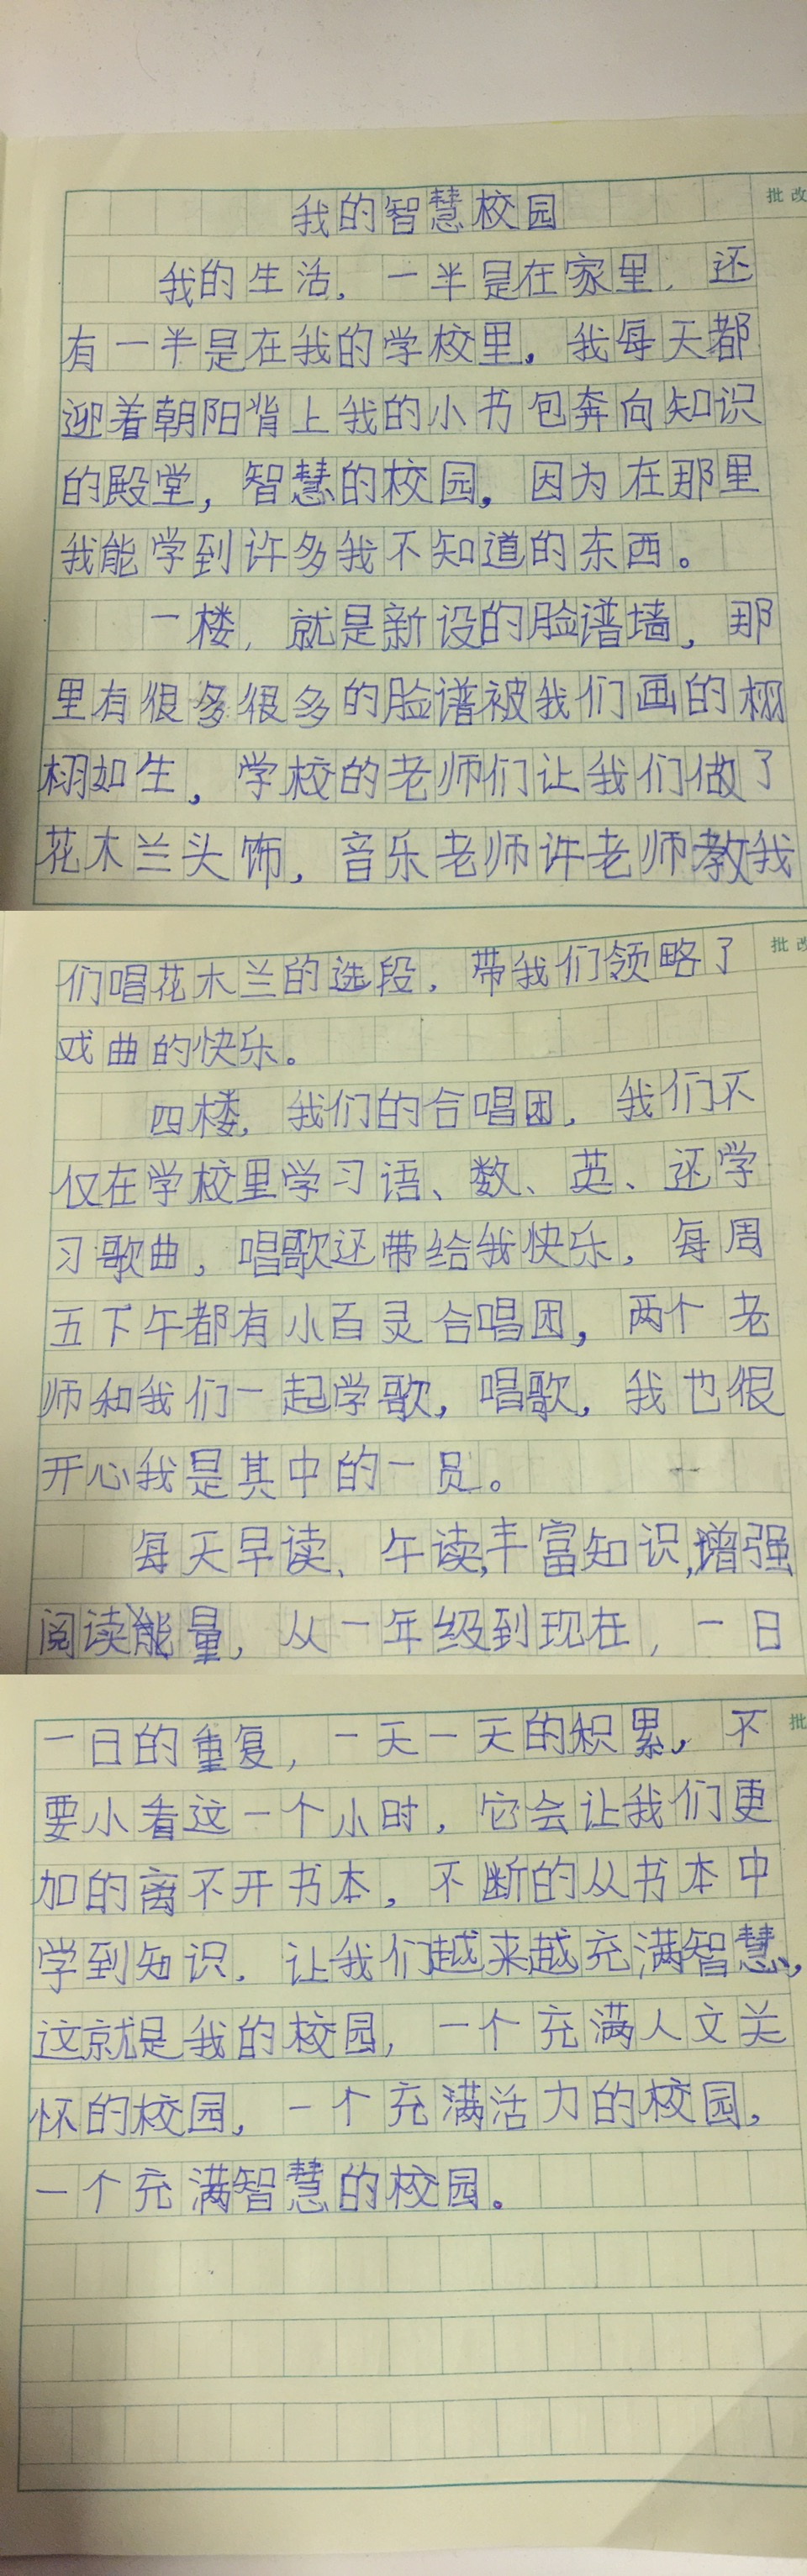 我的智慧校园
批改
我的生活，一半是在家里，还
有一半是在我的学校里。我每天都
迎着朝阳背上我的小书包奔向知识
的殿堂，智慧的校园。因为在那里
我能学到许多我不知道的东西。
一楼，就是新设的脸谱墙，那
里有很多很多的脸谱被我们画的栩
栩如生，学校的老师们让我们做了
花木兰头饰，音乐老师许老师教我
批改
们唱花木兰的选段，带我们领略了
戏曲的快乐。
四楼，我们的合唱团，我们不
仅在学校里学习语、数、英、还学
习歌曲，唱歌还带给我快乐，每周
五下午都有小百灵合唱团，两个老
师和我们一起学歌，唱歌，我也很
开心我是其中的一员。
每天早读、午读,丰富知识,增强
阅读能量，从一年级到现在，一日
批
一日的重复，一天一天的积累，不
要小看这一个小时，它会让我们更
加的离不开书本，不断的从书本中
学到知识．让我们越来越充满智慧，
这就是我的校园，一个充满人文关
怀的校园，一个充满活力的校园，
一个充满智慧的校园。